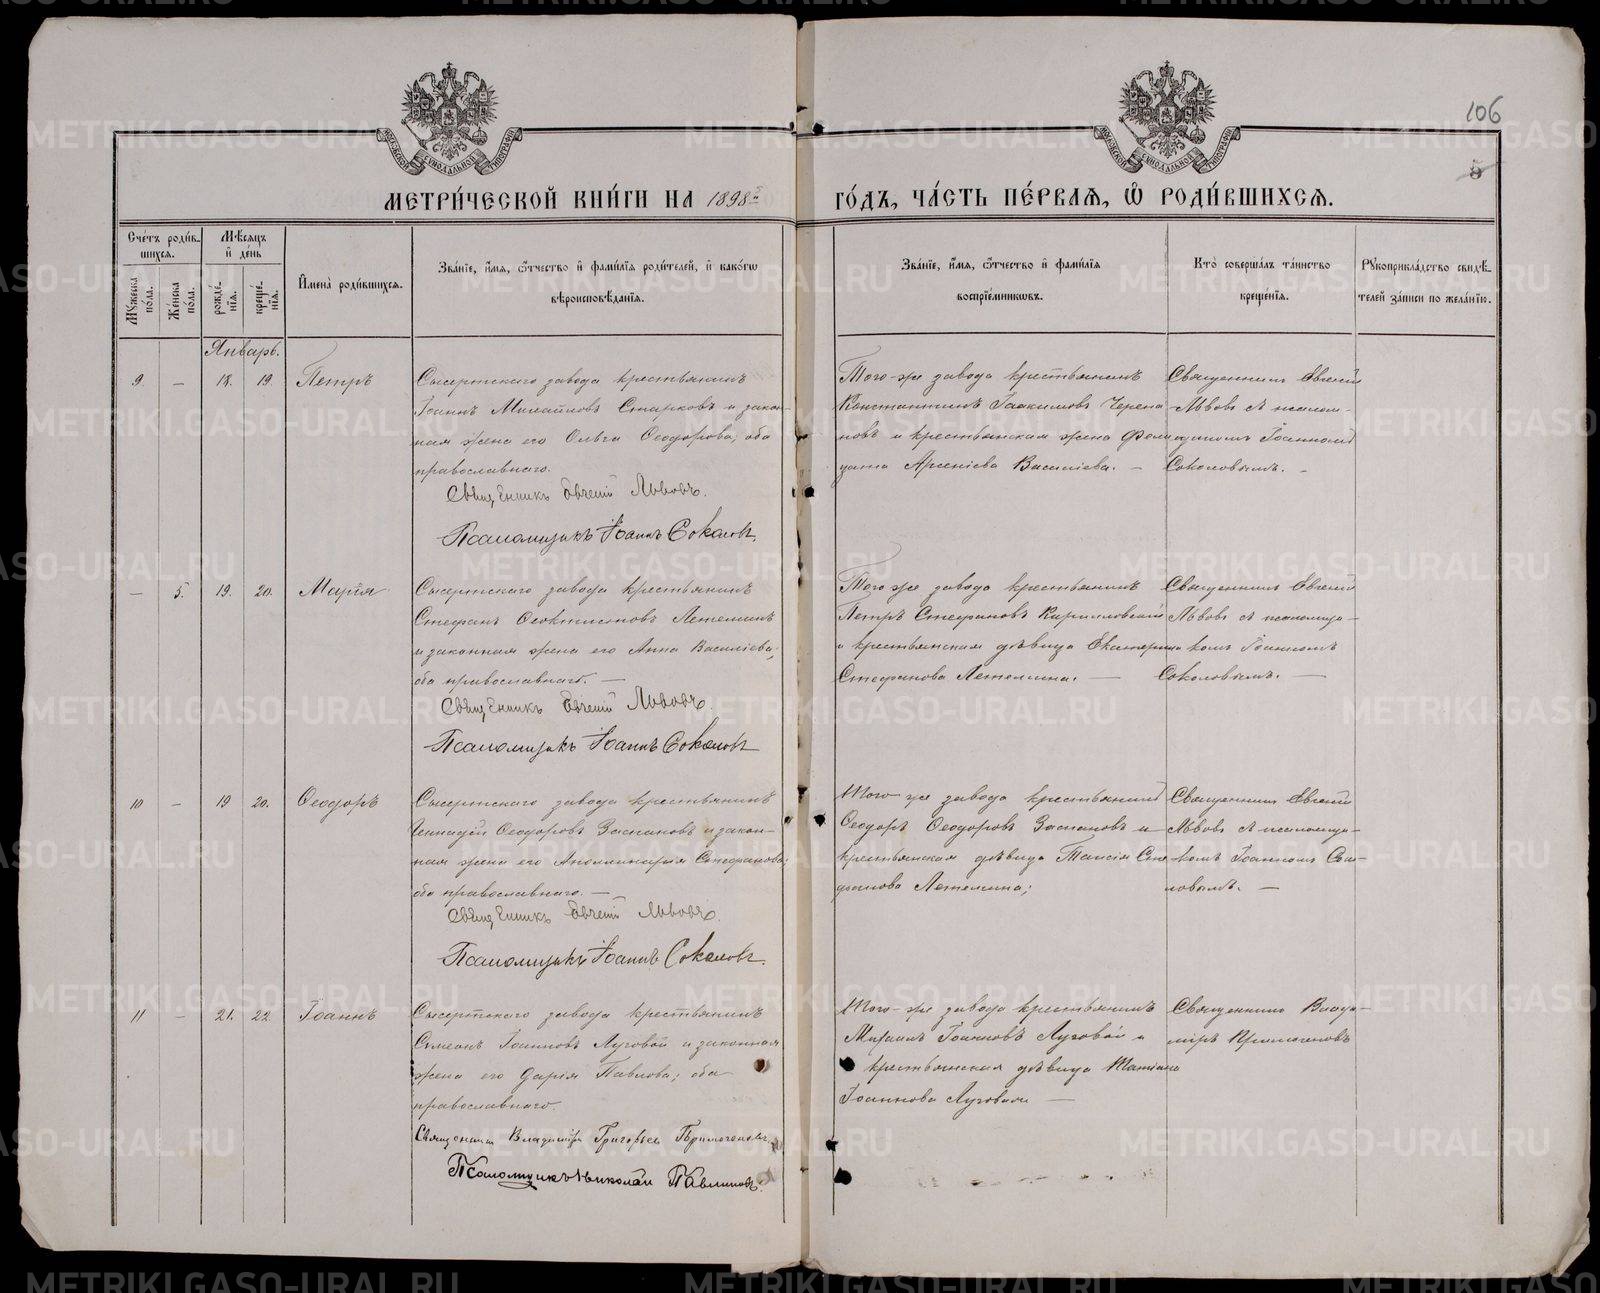 106
5
МЕТРИ́ЧЕСКОЙ КНИ́ГИ НА 1898й ГО́ДЪ, ЧА́СТЬ ПЕ́РВАѦ, Ѡ҆ РОДИ́ВШИХСѦ.
Сче́тъ роди́в-
шихсѧ.
Мꙋ́жеска по́ла.
Же́нска по́ла.
Мѣ́сѧцъ и҆ де́нь
рожде́-
нїѧ.
креще́-
нїѧ.
И҆мена̀ роди́вшихсѧ.
Зва́нїе, и҆́мѧ, ѻ҆́тчество и҆ фами́лїѧ роди́телей, и҆ како́гѡ
вѣроисповѣ́данїѧ.
Зва́нїе, и҆́мѧ, ѻ҆́тчество и҆ фами́лїѧ
воспрїе́мниковъ.
Кто̀ соверша́лъ та́инство
креще́нїѧ.
Рꙋкоприкла́дство свидѣ́-
телей за́писи по жела́нїю.
Январь.
9. — 18. 19. Петръ
Сысертскаго завода крестьянинъ
Іоаннъ Михайловъ Старковъ и закон-
ная жена его Ольга Ѳеодорова, оба
православнаго.
Священникъ Евгеній Львовъ.
Псаломщикъ Іоаннъ Соколовъ.
Того-же завода крестьянинъ
Константинъ Іоакимовъ Черепа
новъ и крестьянская жена Фели
цата Арсеніева Василіева. —
Священникъ Евгеній
Львовъ съ псалом-
щикомъ Іоанномъ
Соколовымъ. —
— 5. 19. 20. Марія
Сысертскаго завода крестьянинъ
Стефанъ Ѳеоктистовъ Летеминъ
и законная жена его Анна Василіева,
оба православнаго. —
Священникъ Евгеній Львовъ.
Псаломщикъ Іоаннъ Соколовъ
Того же завода крестьянинъ
Петръ Стефановъ Кирилловскій
и крестьянская дѣвица Екатерина
Стефанова Летемина. —
Священникъ Евгеній
Львовъ съ псаломщи-
комъ Іоанномъ
Соколовымъ. —
10 — 19 20. Ѳеодоръ
Сысертскаго завода крестьянинъ
Геннадій Ѳеодоровъ Заспановъ и закон-
ная жена его Аполлинарія Стефанова;
оба православнаго. —
Священникъ Евгеній Львовъ.
Псаломщикъ Іоаннъ Соколовъ.
Того же завода крестьянинъ
Ѳеодоръ Ѳеодоровъ Заспановъ и
крестьянская дѣвица Таисія Сте
фанова Летемина;
Священникъ Евгеній
Львовъ съ псаломщи-
комъ Іоанномъ Соко-
ловымъ. —
11 — 21. 22 Іоаннъ
Сысертскаго завода крестьянинъ
Симеонъ Іоанновъ Луговой и законная
жена его Дарія Павлова; оба
православнаго.
Священникъ Владиміръ Григорьевъ
Псаломщикъ Николай Павлиновъ.
Того-же завода крестьянинъ
Михаилъ Іоанновъ Луговой и
крестьянская дѣвица Татіана
Іоаннова Луговая —
Священникъ Влади-
міръ
METRIKI.GASO-URAL.RU